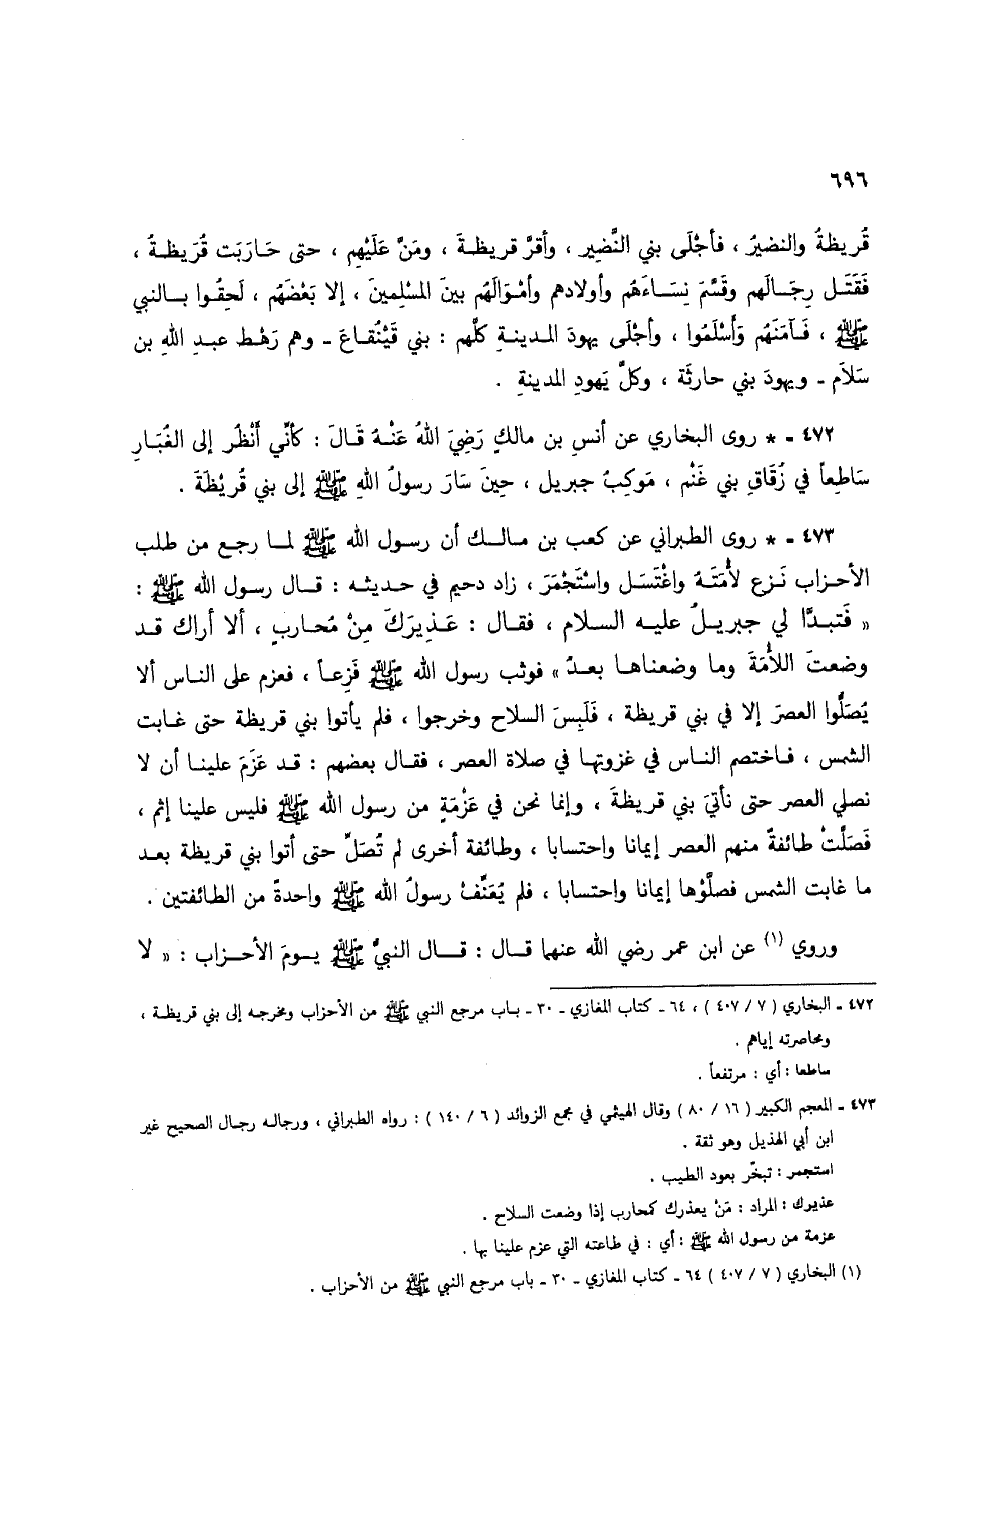 ٦٩٦
قُريظةُ والنضيرُ ، فأجْلَى بني النَّضِيرِ ، وأقرَّ قريظـةَ ، ومَنَّ عَلَيْهِم ، حتى حَـارَبَت قُرَيظـةُ ،
فَقَتَـل رِجَـالَهم وقَسَّمَ نِسَـاءَهُم وأولادهم وأمْـوَالَهُم بينَ المُسْلِمينَ ، إلا بَعْضَهُم ، لَحِقُـوا بـالنبي
ﷺ ، فَـآمَنَهُم وَأَسْلَمُوا ، وأجْلَى يهودَ المـدينـةِ كلَّهم : بني قَيْنُقـاعَ ـ وهم رَهْـط عبـدِ اللهِ بن
سَلاَم ـ ويهودَ بني حارثَة ، وكلَّ يَهودِ المدينةِ .
٤٧٢ ـ * روى البخاري عن أنسِ بن مالكٍ رَضِيَ اللهُ عَنْـهُ قَـالَ : كأنّي أَنْظُر إلى الغُبَـارِ
سَاطِعاً في زُقَاقِ بني غَنْم ، مَوكِبُ جبريل ، حِينَ سَارَ رسولُ اللهِ ﷺ إلى بني قُرَيْظَةَ .
٤٧٣ ـ * روى الطبراني عن كعب بن مـالـك أن رسول الله ﷺ لمـا رجـع من طلب
الأحـزاب نَـزع لأْمَتَـهُ واغْتَسَـل واسْتَجْمَرَ ، زاد دحيم في حـديثـه : قـال رسول الله ﷺ :
« فَتبـدَّا لي جبريـلُ عليـه السـلام ، فقـال : عَـذِيرَكَ مِنْ مُحـارب ، ألا أراك قـد
وضعتَ اللأْمَةَ وما وضعنـاهـا بعـدُ » فوثب رسول الله ﷺ فَزِعـاً ، فعزم على النـاس ألا
يُصَلُّوا العصرَ إلا في بني قريظة ، فَلَبِسَ السلاح وخرجوا ، فلم يأتوا بني قريظة حتى غـابت
الشمس ، فـاختصم النـاس في غزوتهـا في صلاة العصر ، فقـال بعضهم : قـد عَزَمَ علينـا أن لا
نصلي العصر حتى نأتيَ بني قريظةَ ، وإنما نحن في عَزْمَةٍ من رسول الله ﷺ فليس علينا إثم ،
فَصَلَّتْ طائفةٌ منهم العصر إيمانا واحتسابا ، وطائفة أخرى لم تُصَلِّ حتى أتوا بني قريظة بعـد
ما غابت الشمس فصلَّوْها إيمانا واحتسابا ، فلم يُعَنِّفْ رسولُ الله ﷺ واحدةً من الطائفتين .
وروي (١) عن ابن عمر رضي الله عنهما قـال : قـال النبيُّ ﷺ يـومَ الأحـزاب : « لا
٤٧٢ ـ البخاري ( ٧ / ٤٠٧ ) ، ٦٤ ـ كتاب المغازي ـ ٣٠ ـ بـاب مرجع النبي ﷺ من الأحزاب ومخرجـه إلى بني قريظـة ،
ومحاصرته إياهم .
ساطعا : أي : مرتفعاً .
٤٧٣ ـ المعجم الكبير ( ١٦ / ٨٠ ) وقال الهيثمي في مجمع الزوائد ( ٦ / ١٤٠ ) : رواه الطبراني ، ورجالـه رجـال الصحيح غير
ابن أبي الهذيل وهو ثقة .
استجمر : تبخّر بعود الطيب .
عذيرك : المراد : مَنْ يعذرك كمحارب إذا وضعت السلاح .
عزمة من رسول الله ﷺ : أي : في طاعته التي عزم علينا بها .
(١) البخاري ( ٧ / ٤٠٧ ) ٦٤ ـ كتاب المغازي ـ ٣٠ ـ باب مرجع النبي ﷺ من الأحزاب .